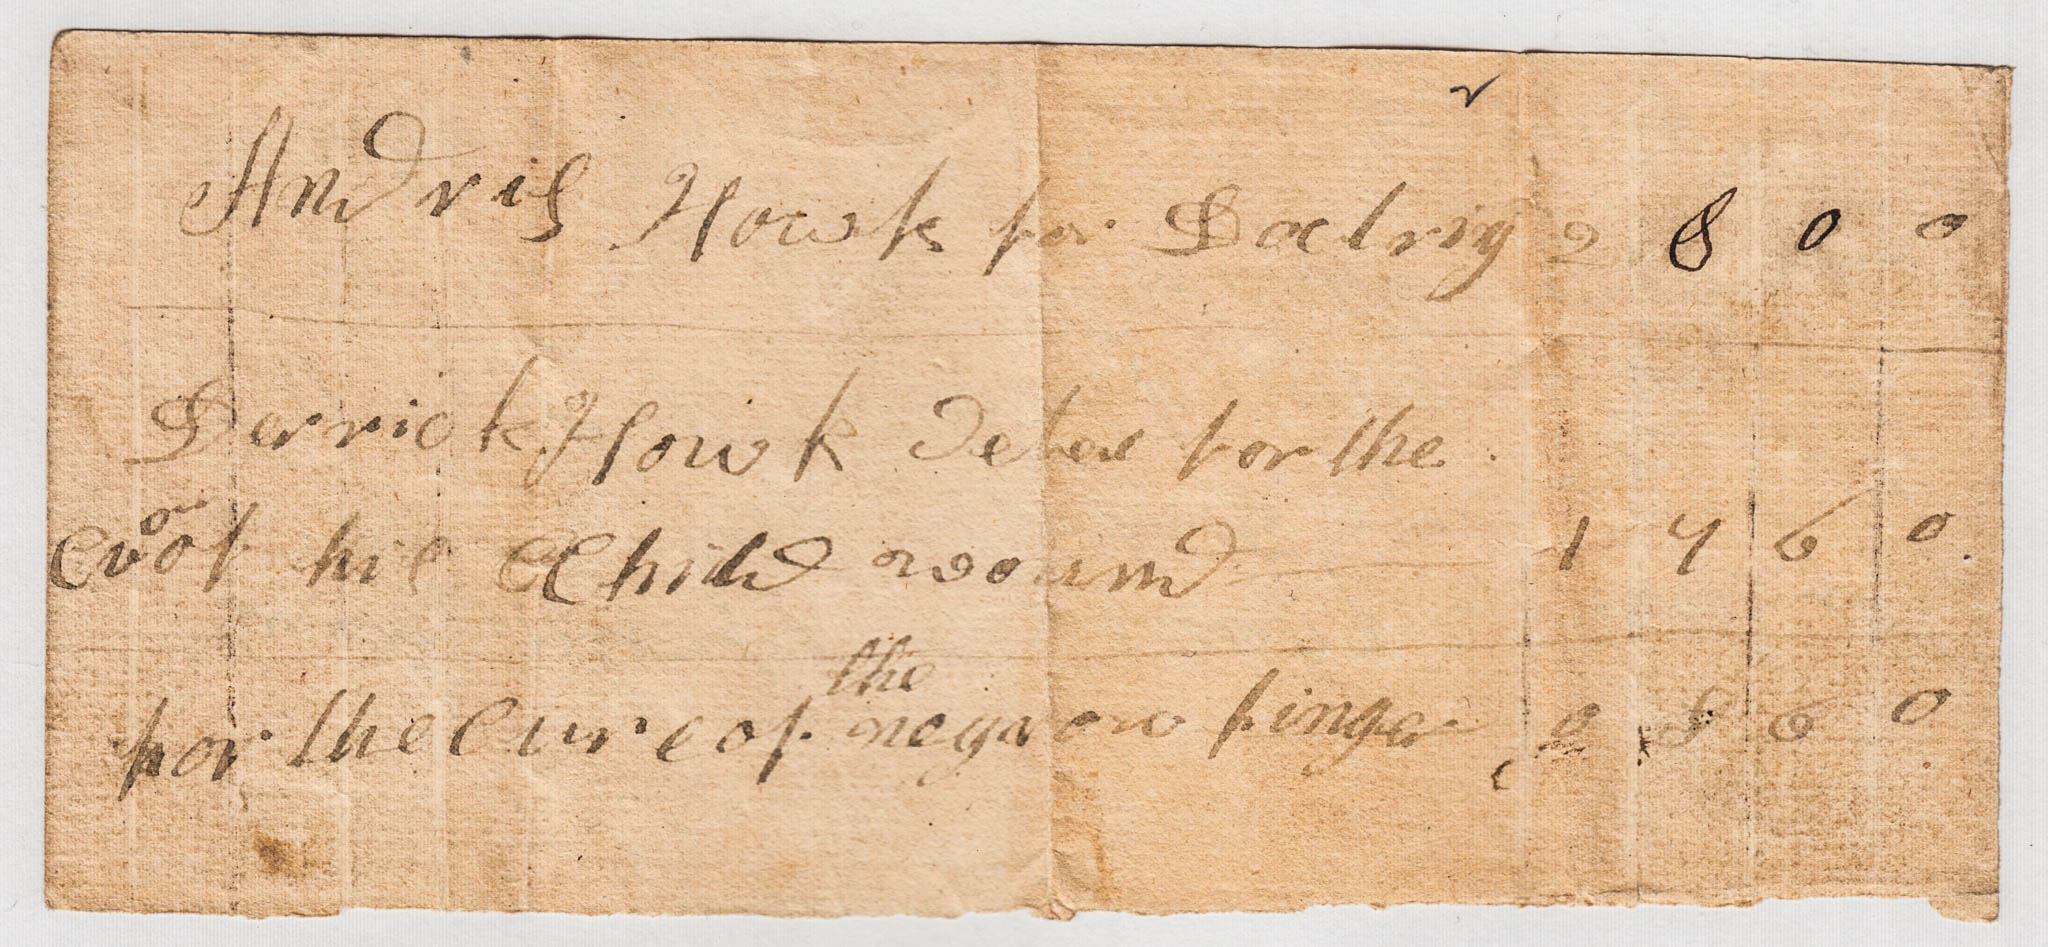 Andris Howk for Doctrin 2 8 0 0
Derrick Howk deter for the
of his Child wound 1 4 6 0
for the Cure of the negrow finger 0 8 6 0